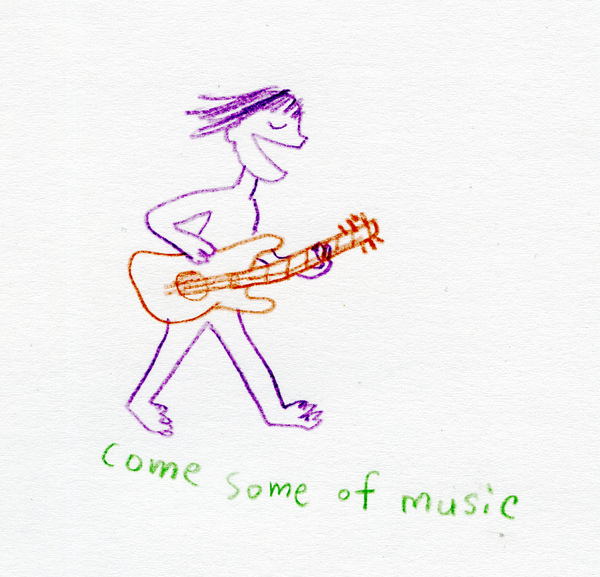 come some of music